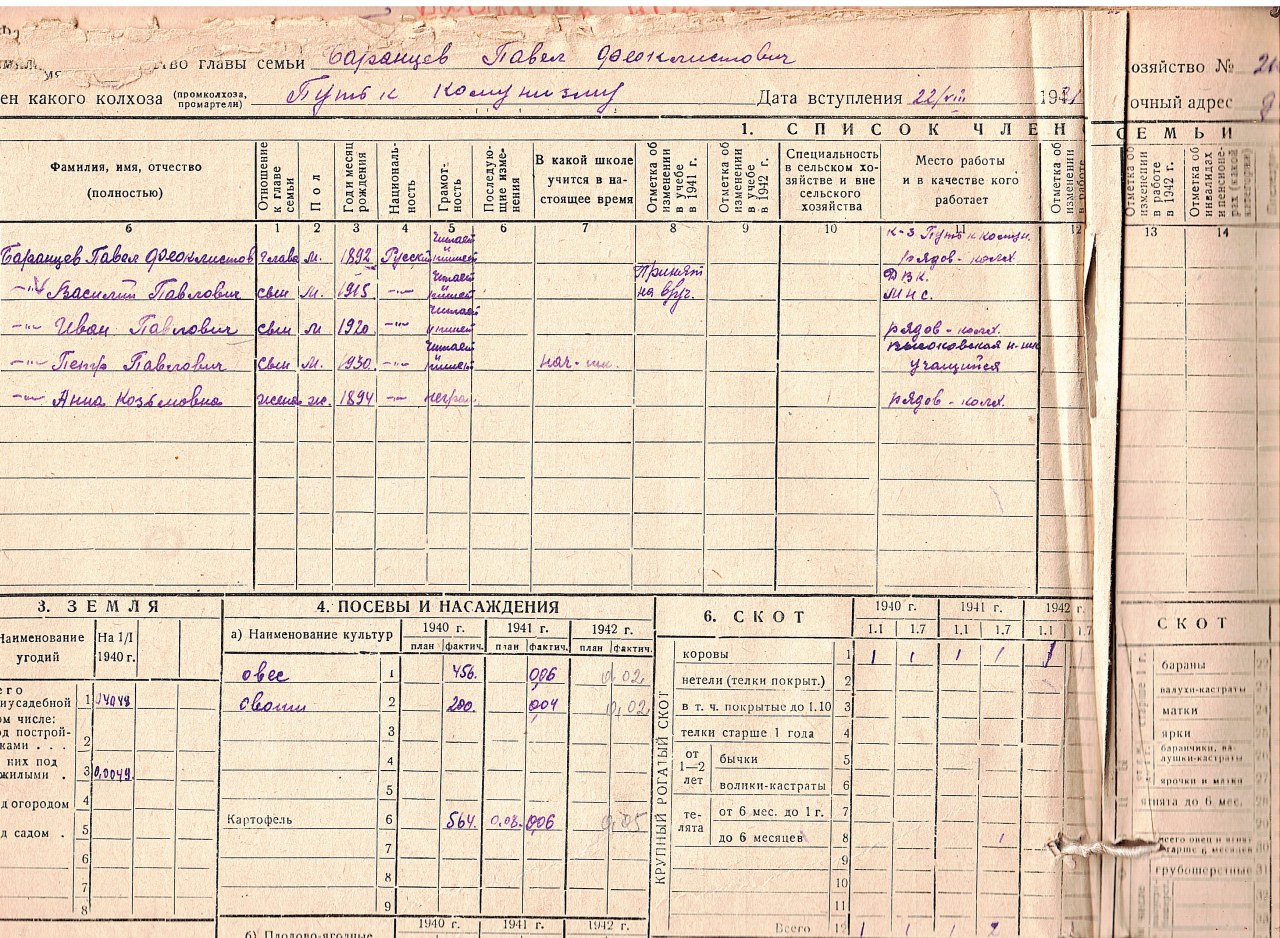 тво главы семьи Баранцев Павел Феоклистович
ен какого колхоза (промколхоза, промартели) Путь к Комунизму Дата вступления 22/VIII 1931
озяйство №
очный адрес
1. СПИСОК ЧЛЕНОВ СЕМЬИ
Фамилия, имя, отчество (полностью)
Отношение к главе семьи
Пол
Год и месяц рождения
Националь-ность
Грамот-ность
Последую-щие изме-нения
В какой школе учится в на-стоящее время
Отметка об изменении в учебе в 1941 г.
Отметка об изменении в учебе в 1942 г.
Специальность в сельском хо-зяйстве и вне сельского хозяйства
Место работы и в качестве кого работает
Отметка об изменении в работе
Отметка об изменении в работе в 1942 г.
Отметка об инвалидах и пенсионе-рах (какой категории)
б 1 2 3 4 5 6 7 8 9 10 11 12 13 14
Баранцев Павел Феоклистов глава м. 1892 Русский читает пишет к-з Путь к комун. рядов-колх.
-"- Василий Павлович сын м. 1915 -"- читает пишет Принят на вруч. ДВК. МНС.
-"- Иван Павлович сын м 1920 -"- читает пишет рядов-колх.
-"- Петр Павлович сын м. 1930 -"- читает пишет нач-шк. высоковская н-шк учащийся
-"- Анна Козьмовна жена ж. 1894 -"- негра. рядов-колх.
3. ЗЕМЛЯ
Наименование угодий На 1/I 1940 г.
его
иусадебной 1
ом числе:
од построй-
ками . . . 2
них под
жилыми . 3 0,0049.
д огородом 4
д садом . 5
6
7
8
4. ПОСЕВЫ И НАСАЖДЕНИЯ
а) Наименование культур 1940 г. 1941 г. 1942 г.
план фактич. план фактич. план фактич.
овес 1 456. 006 0.02
овощи 2 200. 004 0,02
3
4
5
Картофель 6 564. 0.08. 006 0,05
7
8
9
1940 г. 1941 г. 1942 г.
б) Плодово-ягодные
6. СКОТ 1940 г. 1941 г. 1942 г.
1.1 1.7 1.1 1.7 1.1 1.7
КРУПНЫЙ РОГАТЫЙ СКОТ
коровы 1 1 1 1 1 1
нетели (телки покрыт.) 2
в т. ч. покрытые до 1.10 3
телки старше 1 года 4
от 1—2 лет бычки 5
волики-кастраты 6
те-лята от 6 мес. до 1 г. 7
до 6 месяцев 8 1
9
10
11
Всего 12 1 1 1 2
СКОТ
бараны 22
валухи-кастраты
матки 24
ярки
баранчики, ва-лушки-кастраты
ярочки и матки 27
ягнята до 6 мес. 28
всего овец и ягнят старше 6 месяцев 30
грубошерстные 31